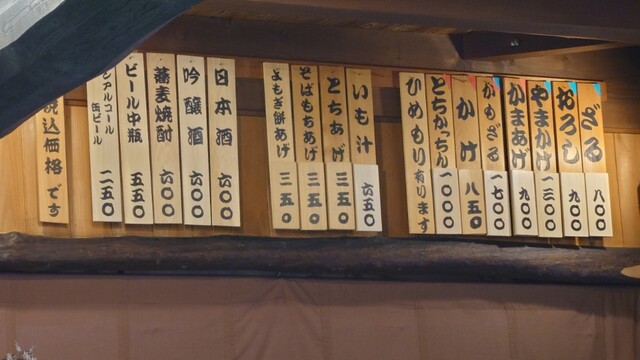 ざる 八〇〇
おろし 九〇〇
やまかけ 一三〇〇
かまあげ 九〇〇
かもざる 一七〇〇
かけ 八五〇
とちかっちん 一〇〇〇
ひめもり有ります
いも汁 六五〇
とちあげ 三五〇
そばもちあげ 三五〇
よもぎ餅あげ 三五〇
日本酒 六〇〇
吟醸酒 六〇〇
蕎麦焼酎 六〇〇
ビール中瓶 五五〇
ンアルコール
缶ビール 二五〇
税込価格です